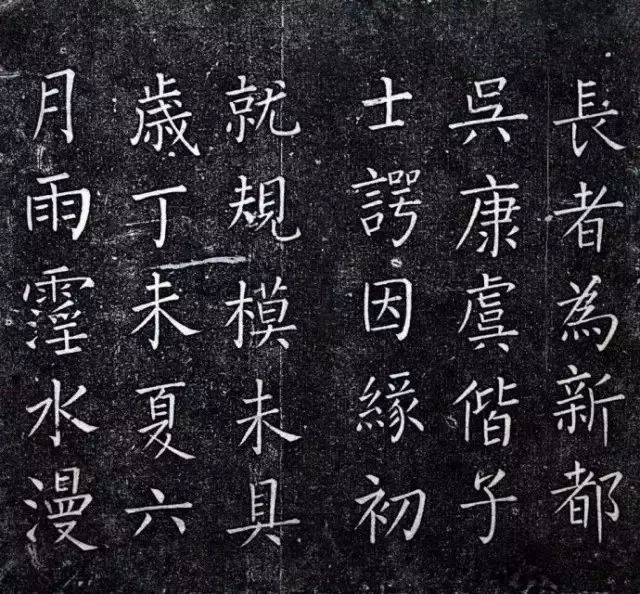 長者為新都
吳康虞偕子
士諤因緣初
就規模未具
歲丁未夏六
月雨霪水漫